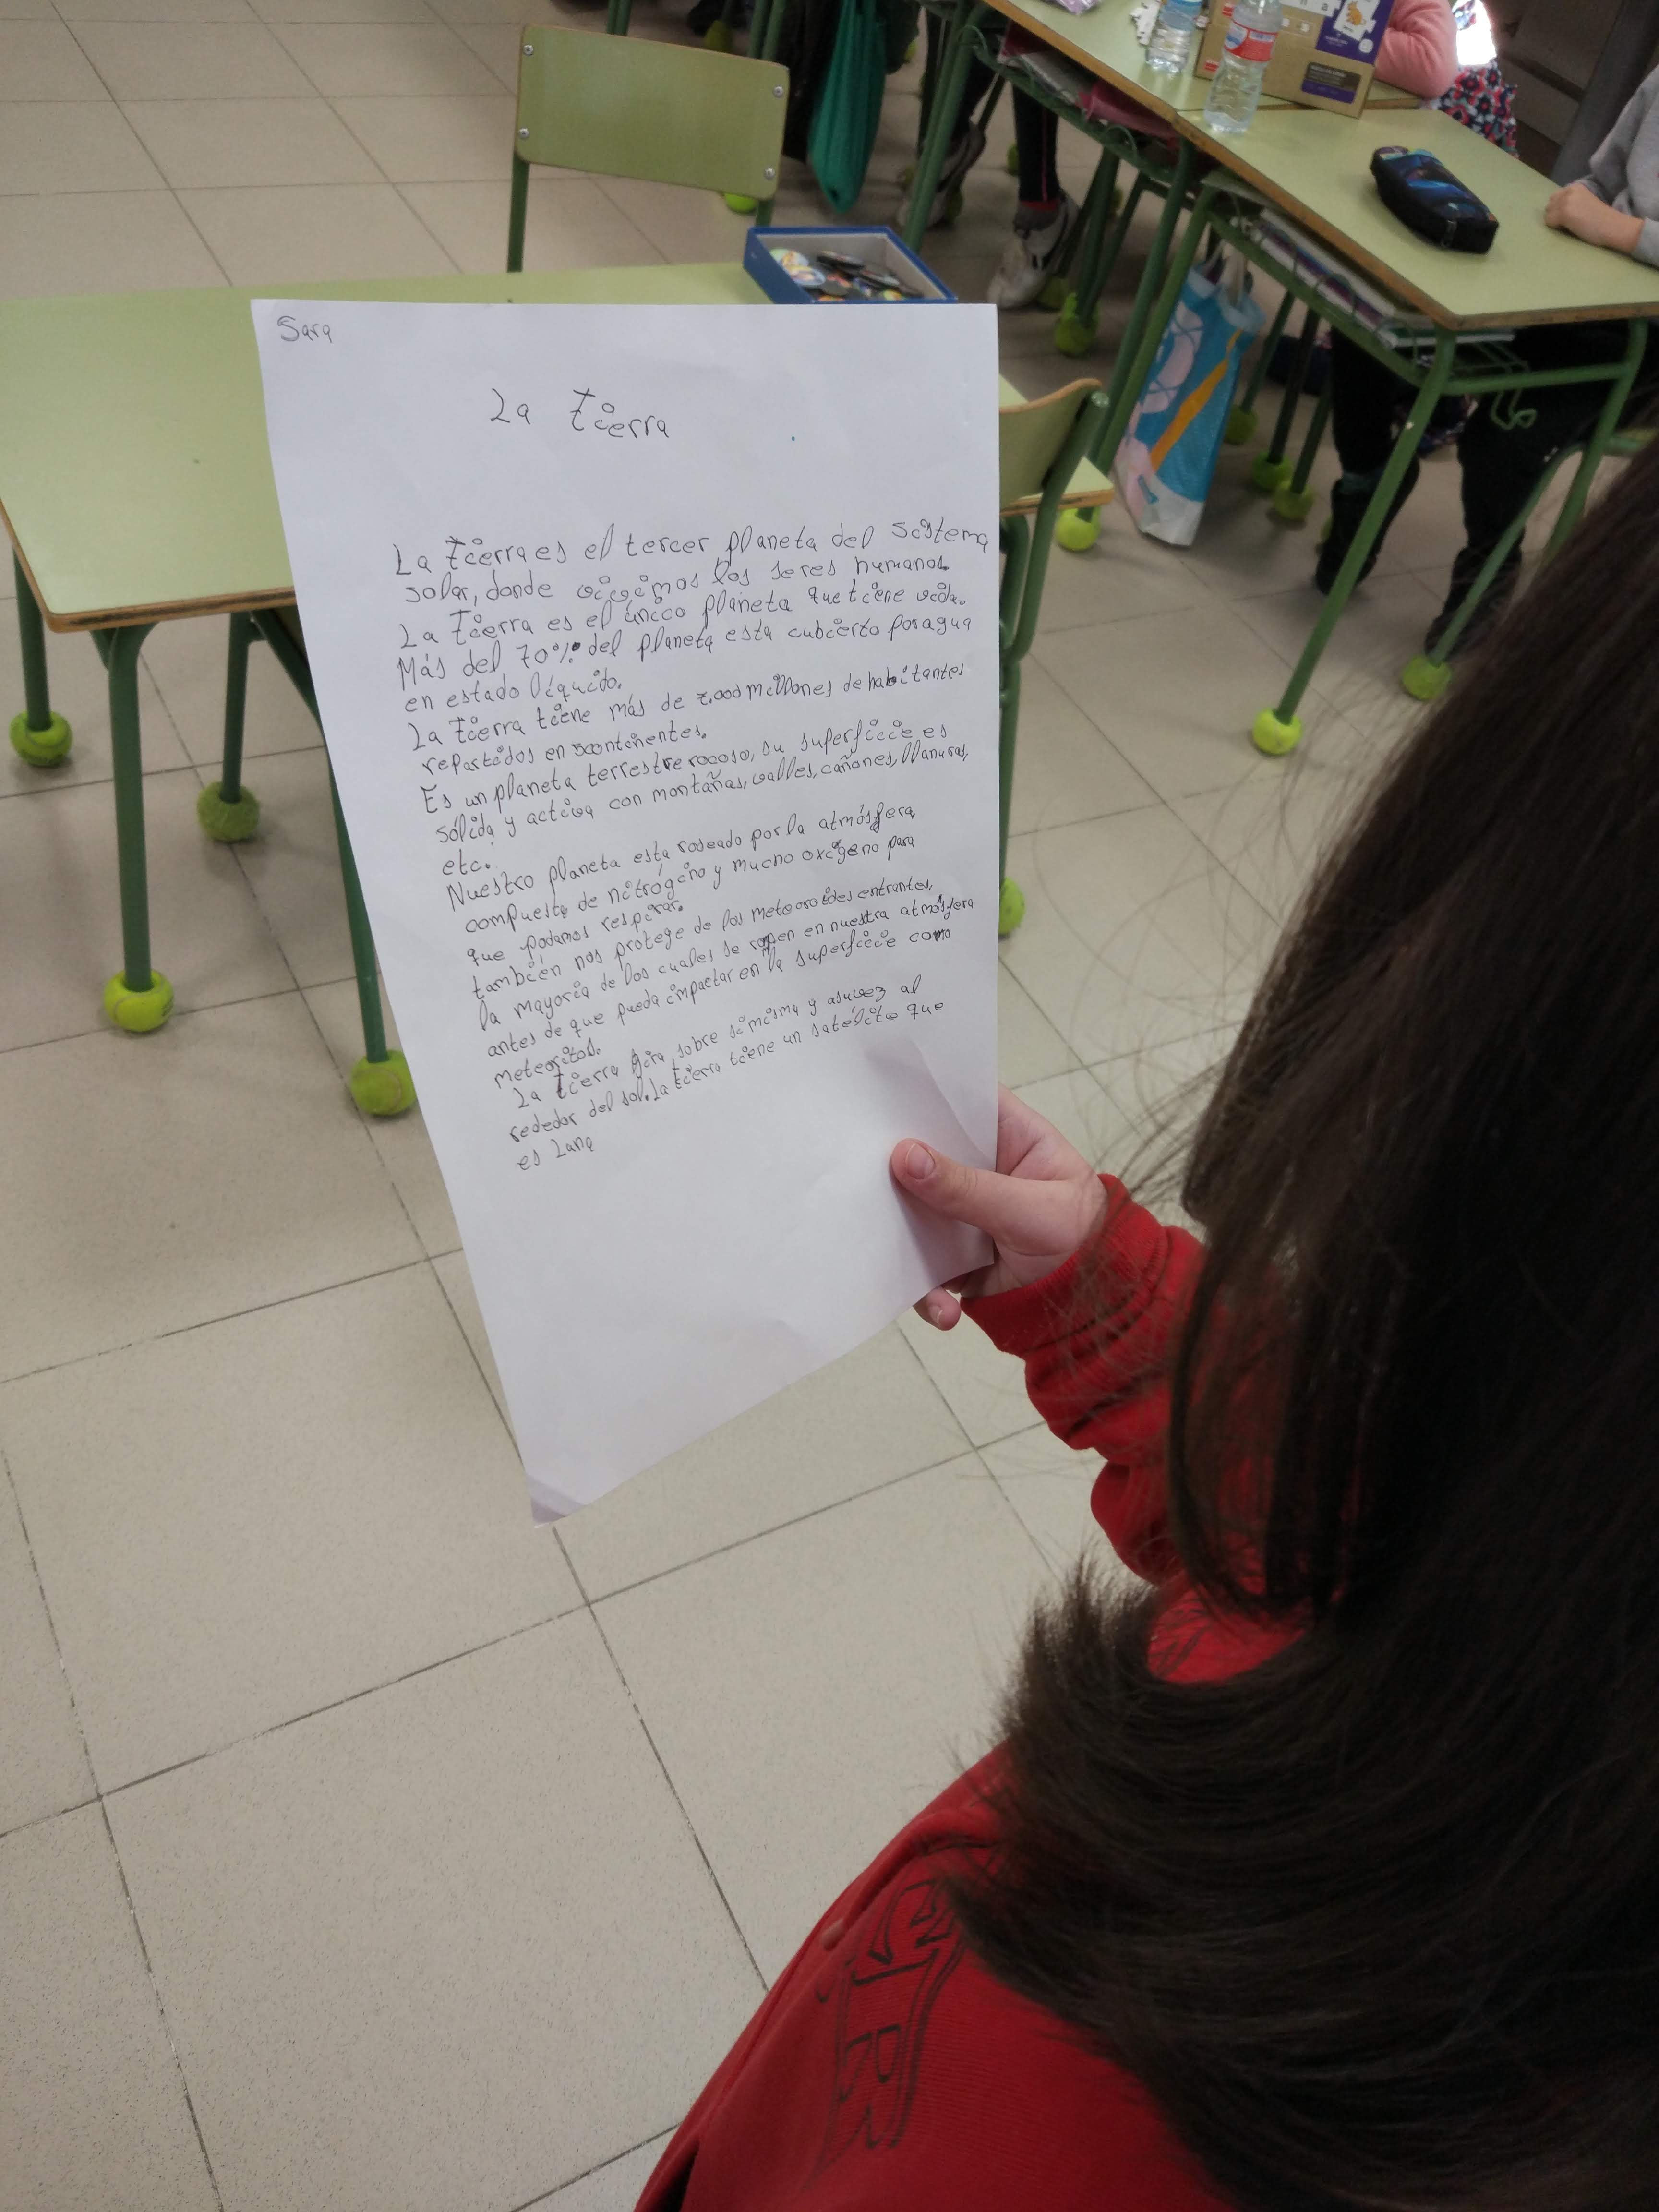 Sara
La Tierra
La Tierra es el tercer planeta del Sistema
solar, donde vivimos los seres humanos.
La Tierra es el único planeta que tiene vida.
Más del 70% del planeta esta cubierto por agua
en estado líquido.
La Tierra tiene más de 7.000 millones de habitantes
repartidos en 5 continentes.
Es un planeta terrestre rocoso, su superficie es
sólida y activa con montañas, valles, cañones, llanuras,
etc.
Nuestro planeta esta rodeado por la atmósfera,
compuesta de nitrógeno y mucho oxígeno para
que podamos respirar.
también nos protege de los meteoroides entrantes,
la mayoría de los cuales se ropen en nuestra atmósfera
antes de que pueda impactar en la superficie como
meteoritos.
La tierra gira sobre si misma y asuvez al
rededor del sol. La tierra tiene un satélite que
es Luna